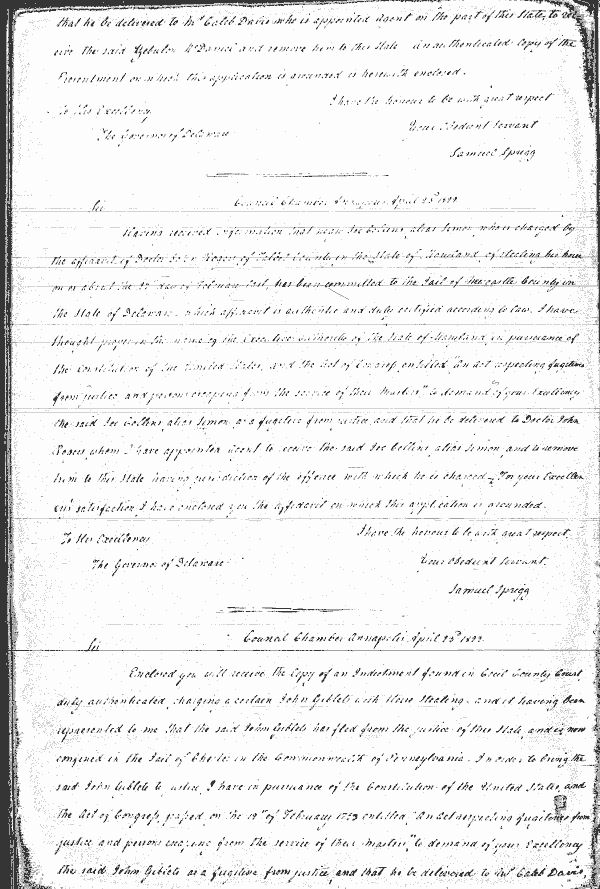 that he be delivered to Mr Caleb Davis who is appointed agent on the part of this state, to re-
ceive the said and remove him to this State an authenticated copy of the
Presentment on which this application is grounded is herewith enclosed.
I have the honour to be with great respect
To His Excellency
Your Obedient Servant
The Governor of Delaware
Samuel Sprigg
Council Chamber Annapolis April 23d 1822
Sir
Having received information that negro Joe Collins, alias Simon, who is charged by
the affidavit of Doctor John Rogers of Talbot County in the State of Maryland, of stealing his horse
on or about the day of February last, has been committed to the Jail of Newcastle County in
the State of Delaware, which affidavit is authentic and duly certified according to law, I have
thought proper in the name of the Executive authority of the State of Maryland, in pursuance of
the Constitution of the United States, and the Act of Congress, entitled "an act respecting fugitives
from justice and persons escaping from the service of their Masters" to demand of your Excellency
the said Joe Collins alias Simon, as a fugitive from justice, and that he be delivered to Doctor John
Rogers whom I have appointed agent to receive the said Joe Collins, alias Simon, and to remove
him to this State having jurisdiction of the offence with which he is charged – For your Excellen-
cy's satisfaction I have enclosed you the affidavit on which this application is grounded.
To His Excellency
I have the honour to be with great respect,
The Governor of Delaware
Your obedient servant.
Samuel Sprigg
Council Chamber Annapolis April 23d 1822.
Sir
Enclosed you will receive the Copy of an Indictment found in Cecil County Court,
duly authenticated, charging a certain John Giblets with Horse Stealing, and it having been
represented to me that the said John Giblets has fled from the justice of this State, and is now
confined in the Jail of Chester in the Commonwealth of Pennsylvania. In order to bring the
said John Giblets to justice I have in pursuance of the Constitution of the United States, and
the Act of Congress passed on the 12th of February 1793 entitled "An Act respecting fugitives from
justice and persons escaping from the service of their Masters," to demand of your Excellency
the said John Giblets as a fugitive from justice, and that he be delivered to Mr Caleb Davis,